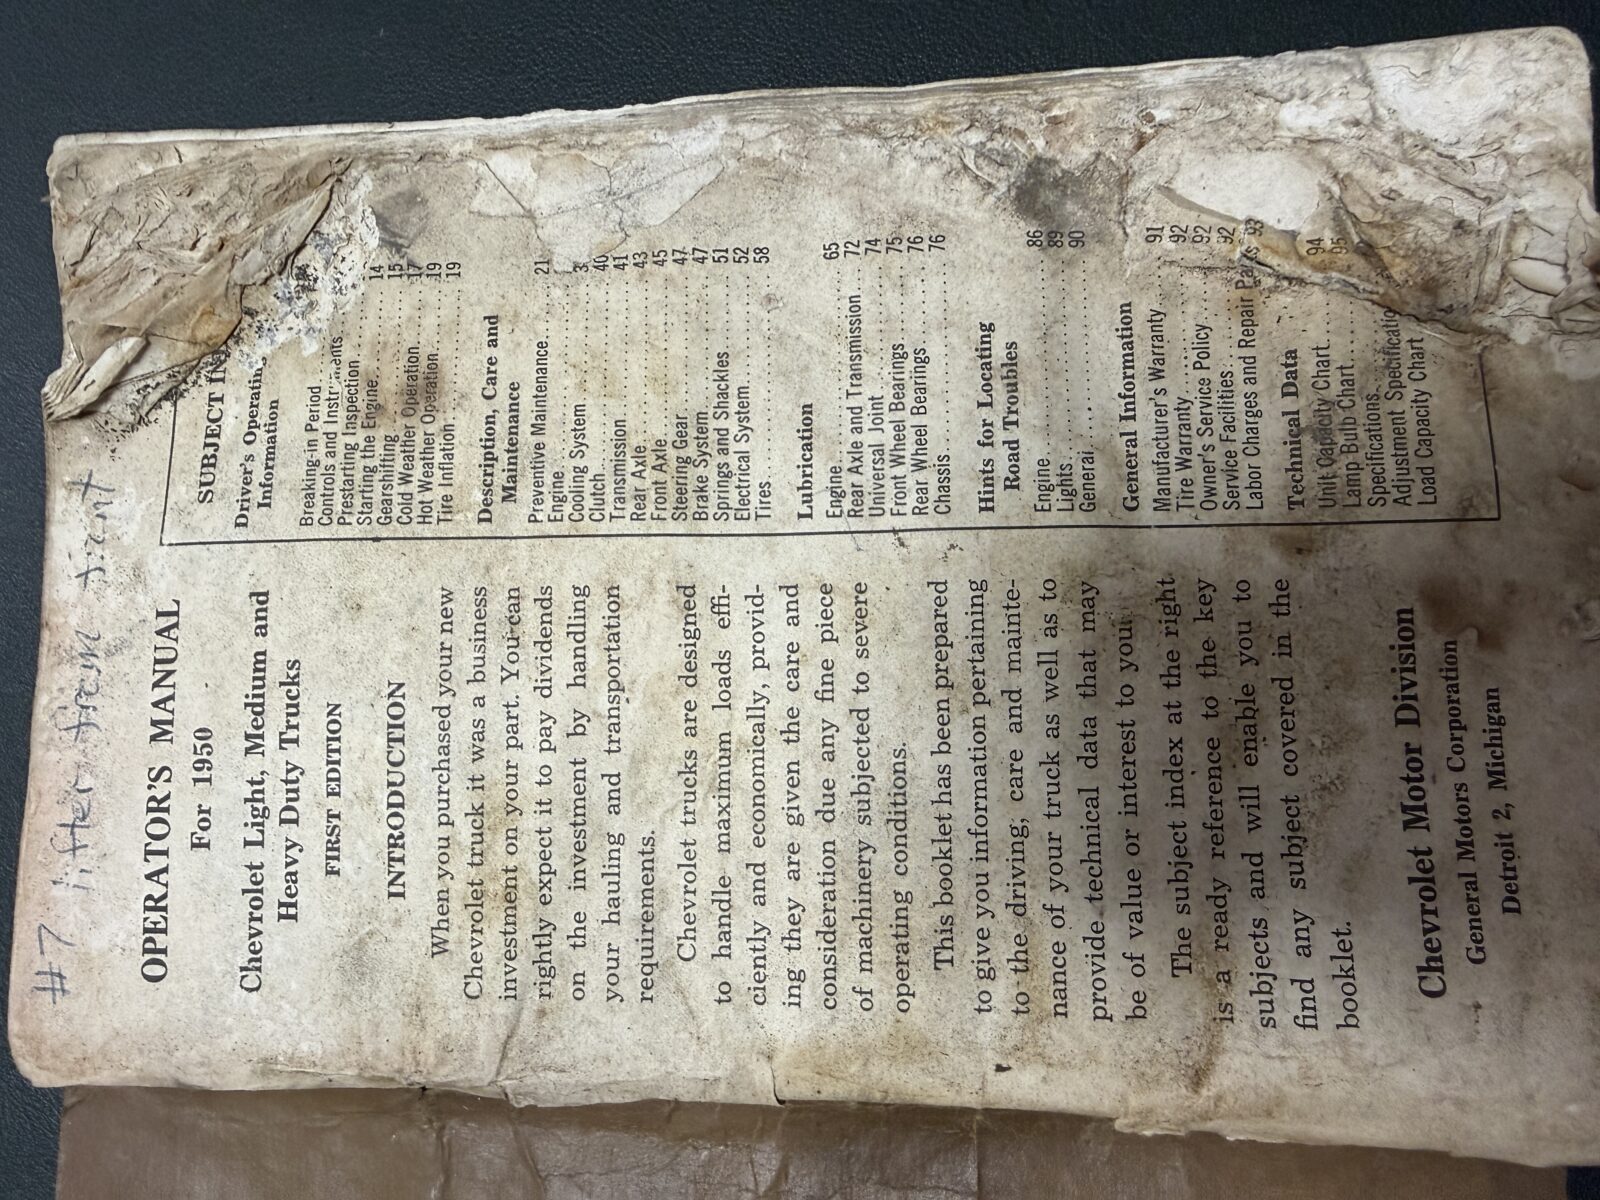 #7 lifter from front
OPERATOR'S MANUAL
For 1950
Chevrolet Light, Medium and
Heavy Duty Trucks
FIRST EDITION
INTRODUCTION
When you purchased your new
Chevrolet truck it was a business
investment on your part. You can
rightly expect it to pay dividends
on the investment by handling
your hauling and transportation
requirements.
Chevrolet trucks are designed
to handle maximum loads effi-
ciently and economically, provid-
ing they are given the care and
consideration due any fine piece
of machinery subjected to severe
operating conditions.
This booklet has been prepared
to give you information pertaining
to the driving, care and mainte-
nance of your truck as well as to
provide technical data that may
be of value or interest to you.
The subject index at the right
is a ready reference to the key
subjects and will enable you to
find any subject covered in the
booklet.
Chevrolet Motor Division
General Motors Corporation
Detroit 2, Michigan
SUBJECT
Driver's Operating
Information
Breaking-in Period
Controls and Instruments
Prestarting Inspection 14
Starting the Engine 15
Gearshifting 17
Cold Weather Operation
Hot Weather Operation 19
Tire Inflation 19
Description, Care and
Maintenance
Preventive Maintenance 21
Engine
Cooling System
Clutch 40
Transmission 41
Rear Axle 43
Front Axle 45
Steering Gear 47
Brake System 47
Springs and Shackles 51
Electrical System 52
Tires 58
Lubrication
Engine 65
Rear Axle and Transmission 72
Universal Joint 74
Front Wheel Bearings 75
Rear Wheel Bearings 76
Chassis 76
Hints for Locating
Road Troubles
Engine 86
Lights 89
General 90
General Information
Manufacturer's Warranty 91
Tire Warranty 92
Owner's Service Policy 92
Service Facilities 92
Labor Charges and Repair Parts 93
Technical Data
Unit Capacity Chart 94
Lamp Bulb Chart 95
Specifications
Adjustment
Load Capacity Chart